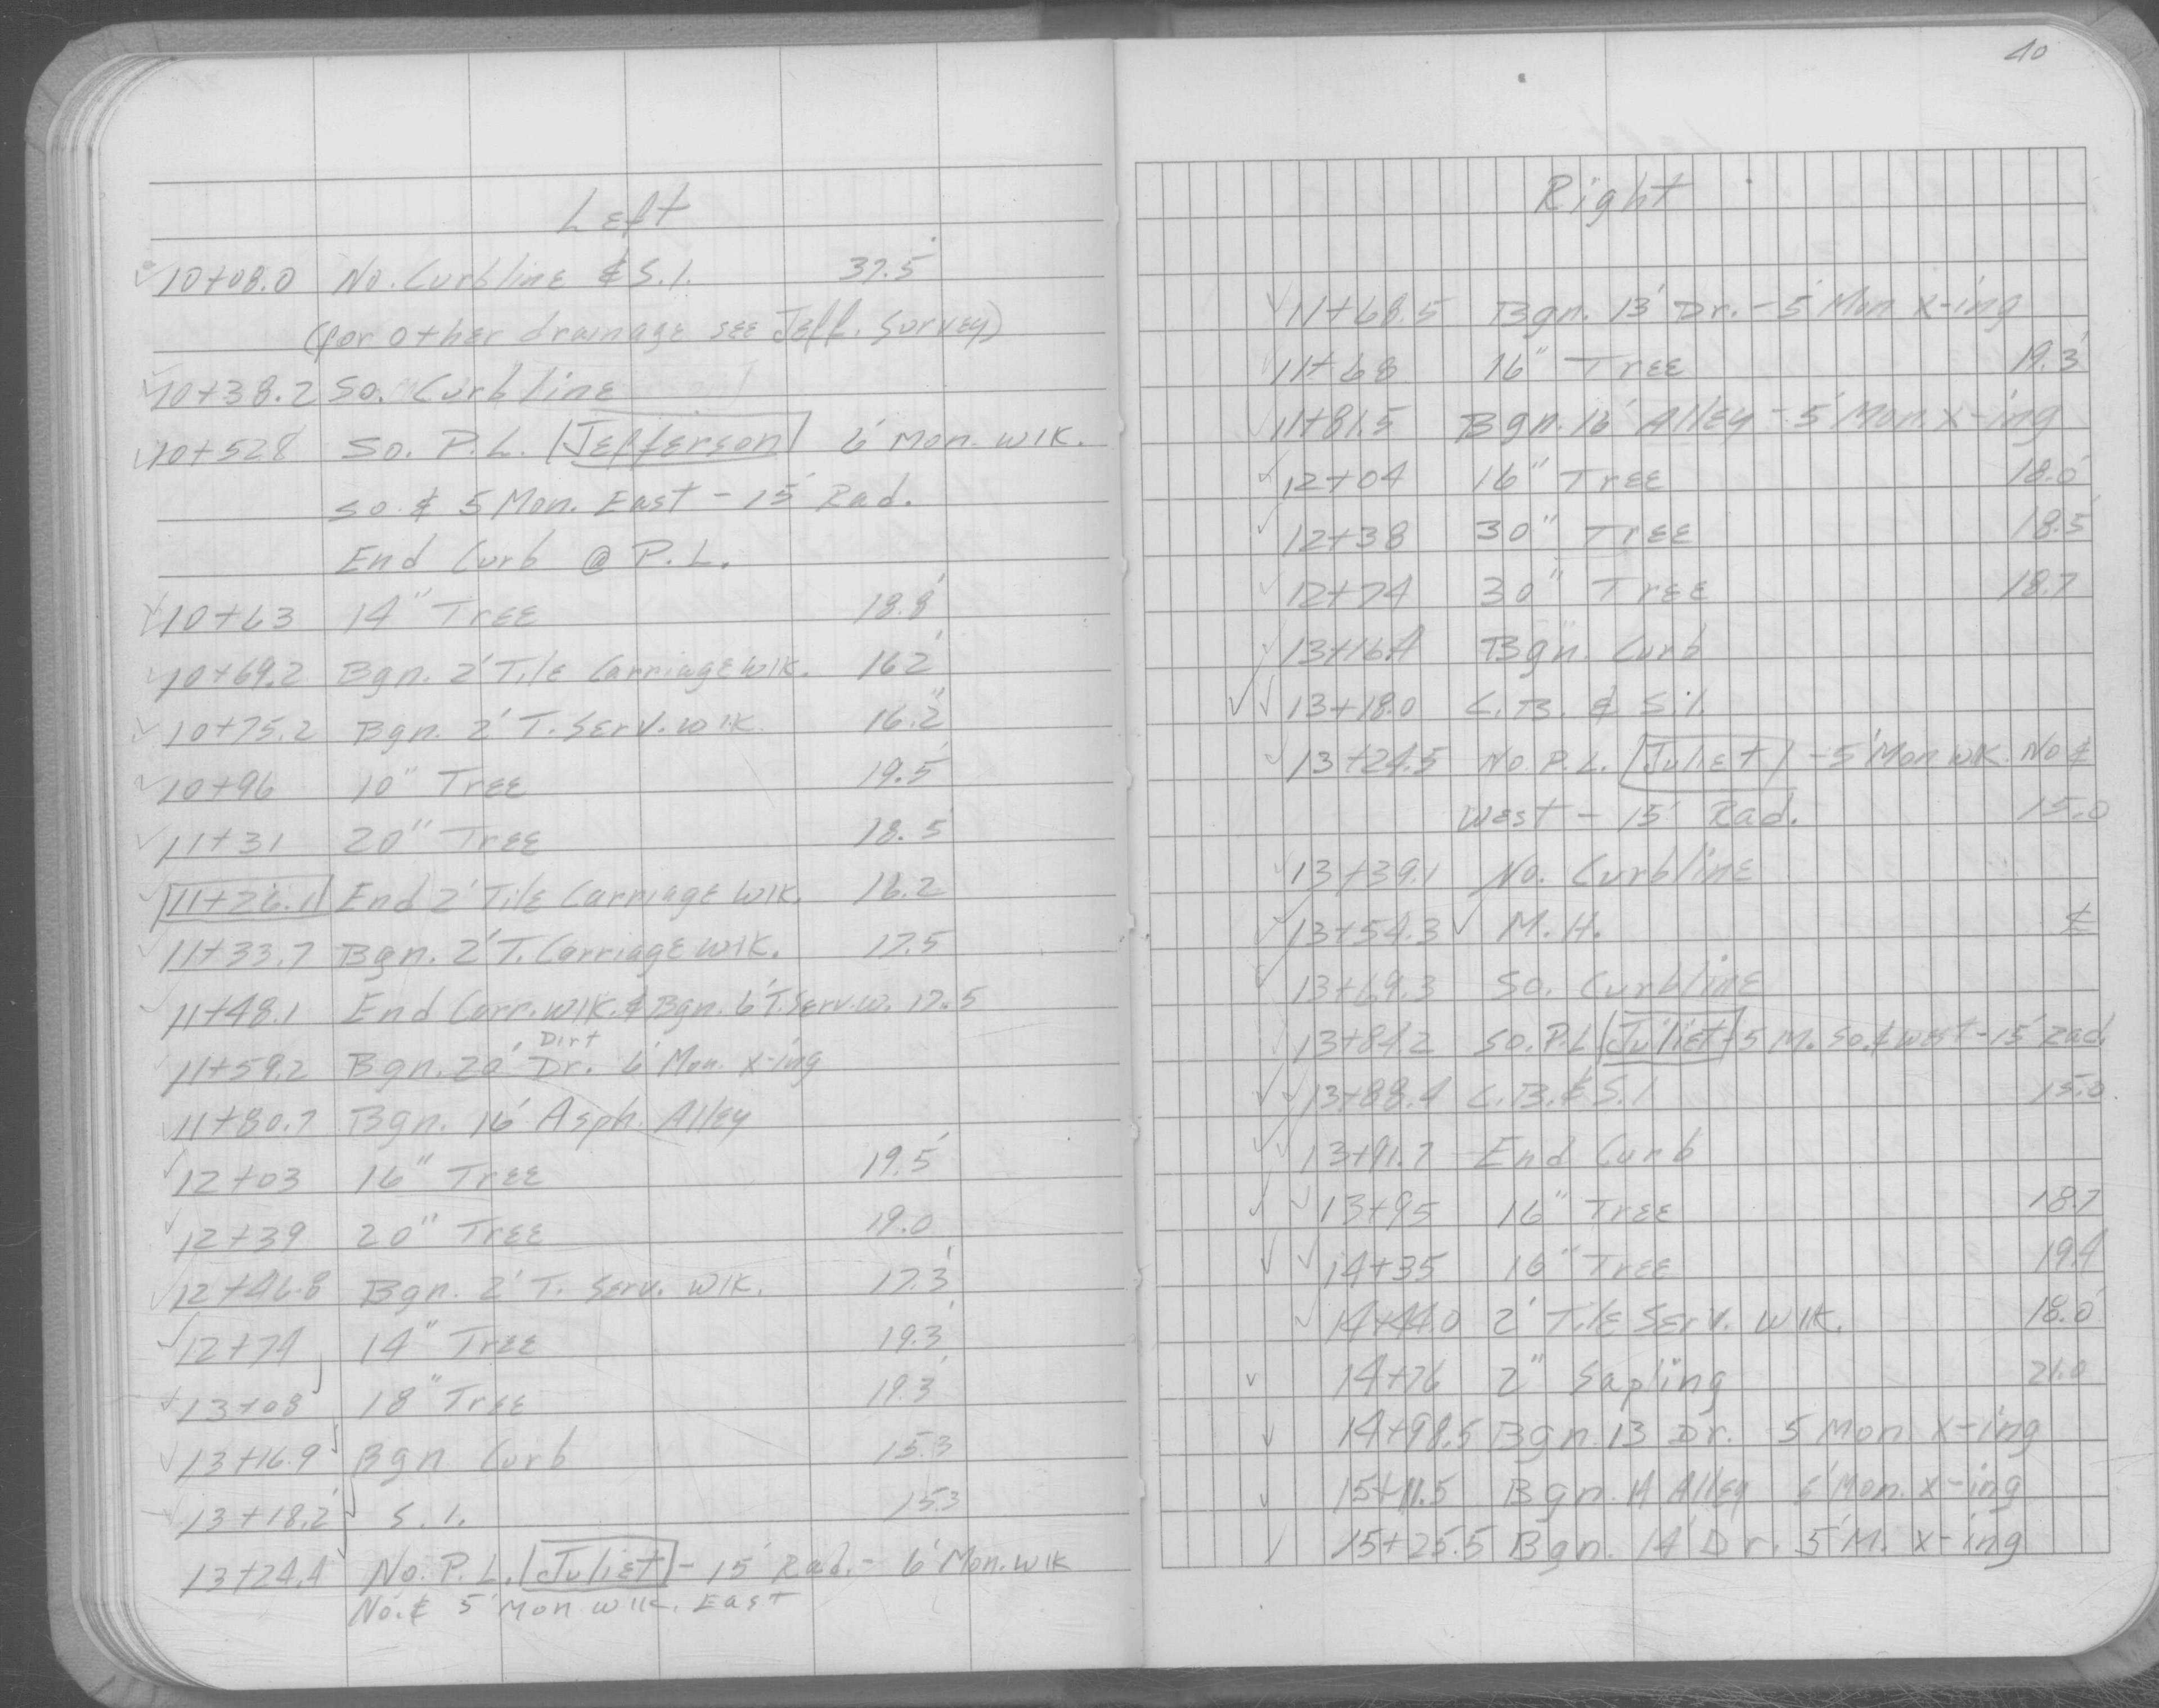 Left
10+08.0 No. Curbline & S.I. 37.5'
(for other drainage see Jeff. Survey)
10+38.2 So. Curbline
10+52.8 So. P.L. Jefferson 6' Mon. wlk.
So. & 5 Mon. East - 15' Rad.
End Curb @ P.L.
10+63 14" Tree 18.8'
10+69.2 Bgn. 2' Tile Carriage wlk. 16.2'
10+75.2 Bgn. 2' T. Serv. wlk. 16.2"
10+96 10" Tree 19.5'
11+31 20" Tree 18.5'
11+26.1 End 2' Tile Carriage wlk. 16.2
11+33.7 Bgn. 2' T. Carriage wlk. 17.5
11+48.1 End Carr. wlk. & Bgn. 6' T. Serv. w. 17.5
Dirt
11+59.2 Bgn. 20' Dr. 6' Mon. x-ing
11+80.7 Bgn. 16' Asph. Alley
12+03 16" Tree 19.5'
12+39 20" Tree 19.0
12+46.8 Bgn. 2' T. Serv. wlk. 17.3'
12+74 14" Tree 19.3'
13+08 18" Tree 19.3'
13+16.9 Bgn Curb 15.3
13+18.2 S.I. 15.3
13+24.4 No. P.L. Juliet - 15' Rad. - 6' Mon. wlk
No. & 5' Mon wlk. East
40
Right
11+68.5 Bgn. 13' Dr. - 5' Mon x-ing
11+68 16" Tree 19.3'
11+81.5 Bgn. 16' Alley - 5' Mon. x-ing
12+04 16" Tree 18.0'
12+38 30" Tree 18.5'
12+74 30" Tree 18.7
13+16.4 Bgn. Curb
13+18.0 C.B. & S.I.
13+24.5 No. P.L. Juliet - 5' Mon wlk. No &
West - 15' Rad. 15.0
13+39.1 No. Curbline
13+54.3 M.H. ℄
13+69.3 So. Curbline
13+84.2 So. P.L. Juliet - 5 M. So. & West - 15' Rad.
13+88.4 C.B. & S.I 15.0
13+91.7 End Curb
13+95 16" Tree 18.7
14+35 16" Tree 19.4
14+44.0 2' Tile Serv. wlk. 18.0'
14+76 2" Sapling 21.0
14+98.5 Bgn. 13 Dr. 5 Mon x-ing
15+11.5 Bgn. 14 Alley Mon. x-ing
15+25.5 Bgn. 14' Dr. 5' M. x-ing